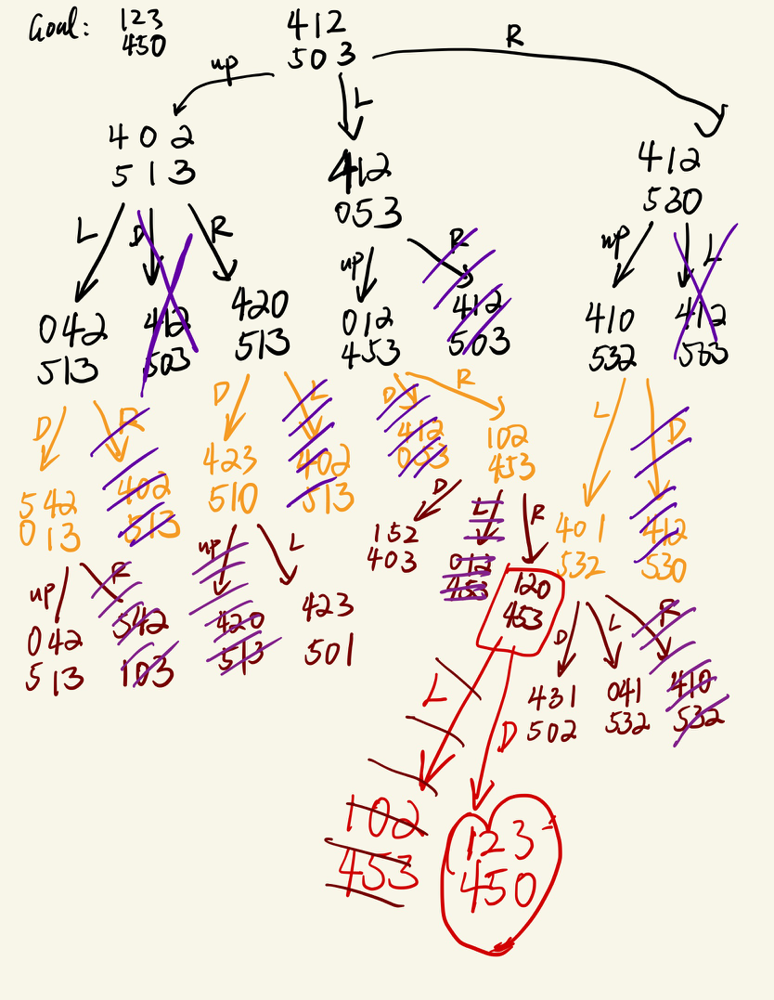 Goal: 123
450
412
503
up
L
R
402
513
412
053
412
530
L
D
R
up
R
up
L
042
513
412
503
420
513
012
453
412
503
410
532
412
503
D
R
D
L
D
R
L
D
542
013
402
513
423
510
402
513
412
053
102
453
401
532
412
530
up
R
up
L
D
L
R
D
L
R
042
513
542
103
420
513
423
501
152
403
012
453
120
453
431
502
041
532
410
532
L
D
102
453
123
450